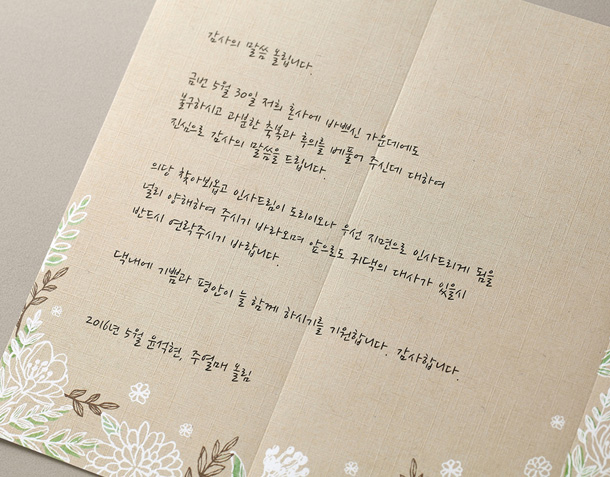 감사의 말씀 올립니다.
금번 5월 30일 저희 혼사에 바쁘신 가운데에도
불구하시고 과분한 축복과 후의를 베풀어 주신데 대하여
진심으로 감사의 말씀을 드립니다.
의당 찾아뵈옵고 인사드림이 도리이오나 우선 지면으로 인사드리게 됨을
널리 양해하여 주시기 바라오며 앞으로도 귀댁의 대사가 있을시
반드시 연락주시기 바랍니다.
댁내에 기쁨과 평안이 늘 함께 하시기를 기원합니다. 감사합니다.
2016년 5월 윤석현, 주열매 올림